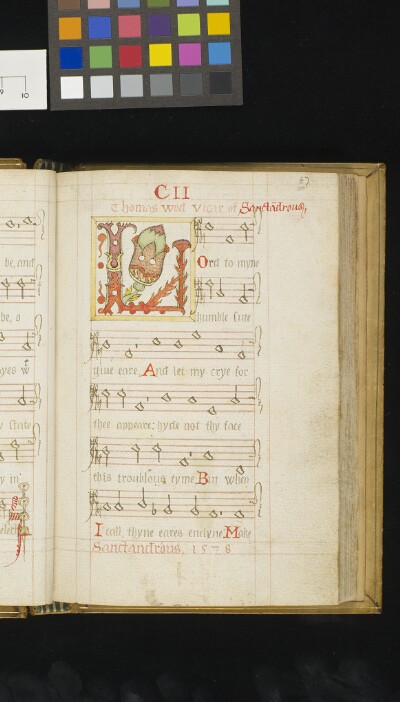 9 10
67
CII
Thomas Wod Vicar of Sanctandrous,
be, and
LOrd to myne
be, o
humble sute
ayes wt
giue eare, And let my crye for
y state
thee appeare: hyde not thy face
y in
this troublous tyme. Bm when
I call, thyne eares enclyne, Make
Sanctandrous, 1578